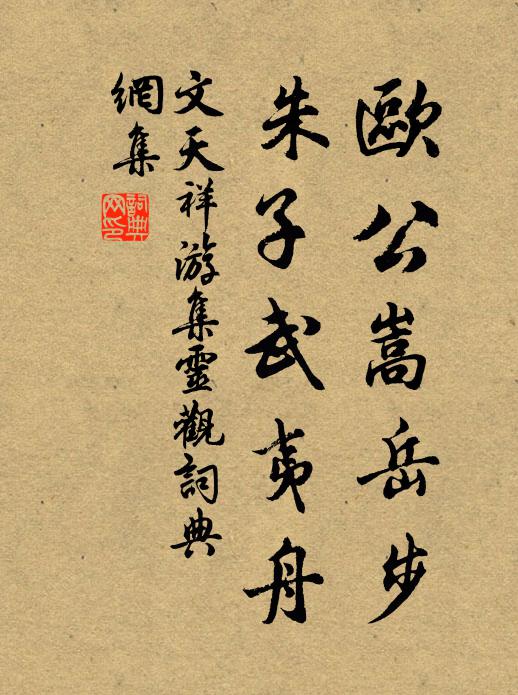 歐公嵩岳步
朱子武夷舟
文天祥游集靈觀詞典
網集
詞典網印